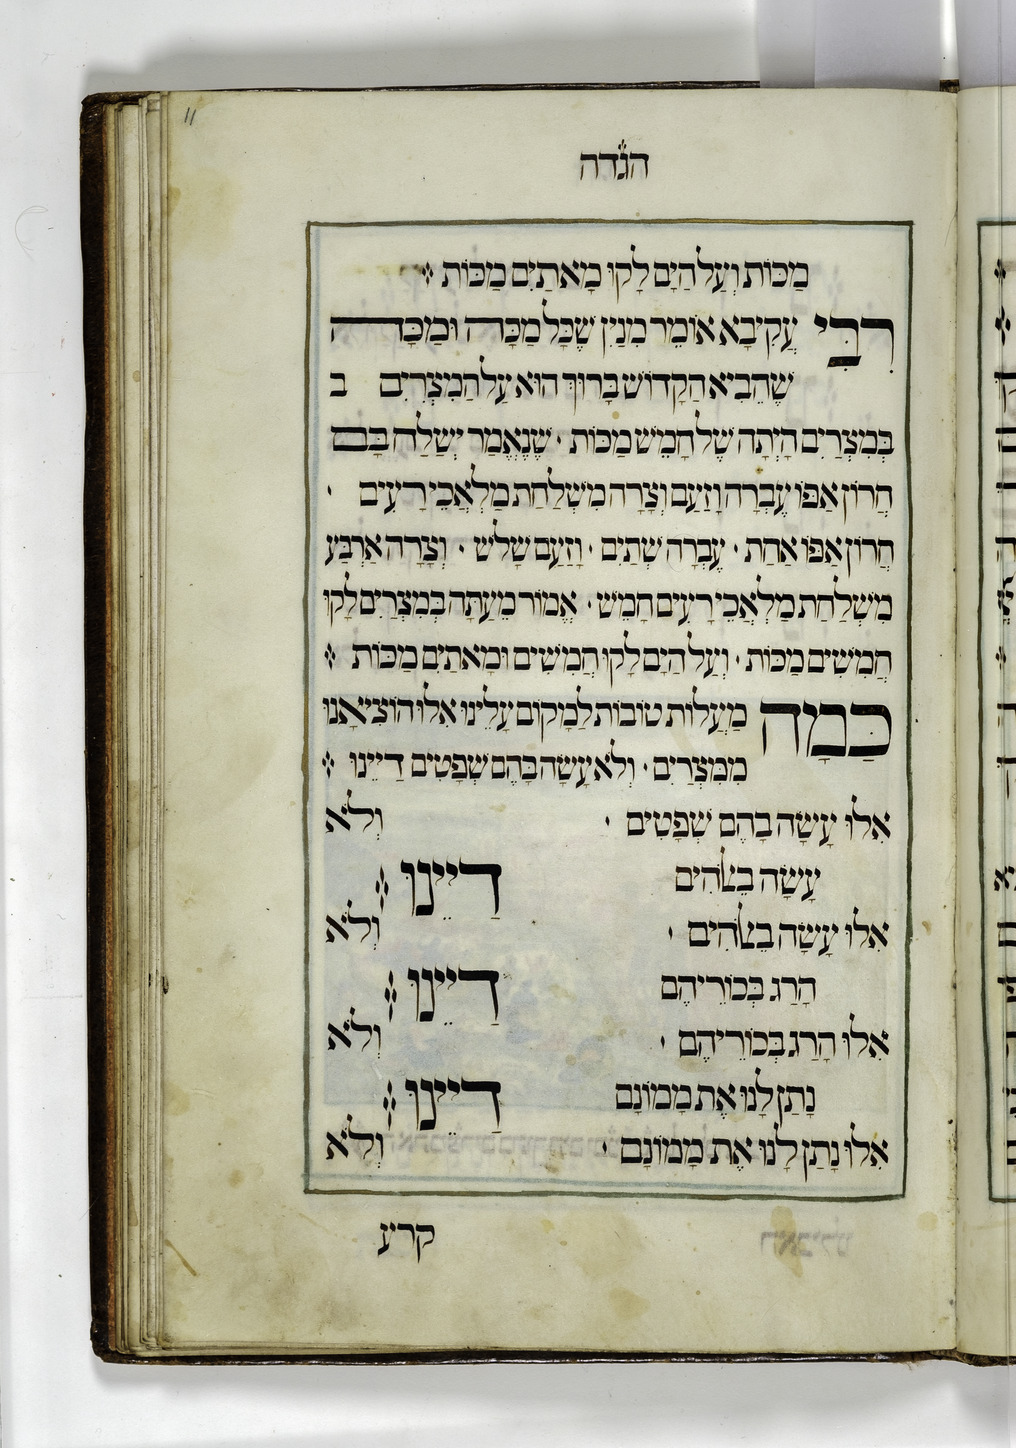 11
הגדה
מַכּוֹת וְעַל הַיָּם לָקוּ מָאתַיִם מַכּוֹת
רַבִּי עֲקִיבָא אוֹמֵר מִנַיִן שֶׁכָּל מַכָּה וּמַכָּה
שֶׁהֵבִיא הַקָדוֹשׁ בָּרוּךְ הוּא עַל הַמִצְרִיִם ב
בְּמִצְרַיִם הָיְתָה שֶׁל חָמֵשׁ מַכּוֹת · שֶׁנֶאֱמַר יְשַׁלַח בָּם
חֲרוֹן אַפּוֹ עֶבְרָה וָזַעַם וְצָרָה מִשְׁלַחַת מַלְאֲכֵי רָעִים ·
חֲרוֹן אַפּוֹ אַחַת · עֶבְרָה שְׁתַּיִם · וָזַעַם שָׁלֹשׁ · וְצָרָה אַרְבַּע
מִשְׁלַחַת מַלְאֲכֵי רָעִים חָמֵשׁ · אֱמוֹר מֵעַתָּה בְּמִצְרַיִם לָקוּ
חֲמִשִׁים מַכּוֹת · וְעַל הַיָם לָקוּ חֲמִשִׁים וּמָאתַיִם מַכּוֹת
כַּמָּה מַעֲלוֹת טוֹבוֹת לַמָקוֹם עָלֵינוּ אִלוּ הוֹצִיאָנוּ
מִמִצְרַיִם · וְלֹא עָשָׂה בָּהֶם שְׁפָטִים דַיֵינוּ
אִלוּ עָשָׂה בָהֶם שְׁפָטִים · וְלֹא
עָשָׂה בֵאלֹהִים דַיֵינוּ
אִלוּ עָשָׂה בֵאלֹהִים · וְלֹא
הָרַג בְּכוֹרֵיהֶם דַיֵינוּ
אִלוּ הָרַג בְּכוֹרֵיהֶם · וְלֹא
נָתַן לָנוּ אֶת מָמוֹנָם דַיֵינוּ
אִלוּ נָתַן לָנוּ אֶת מָמוֹנָם · וְלֹא
קרע